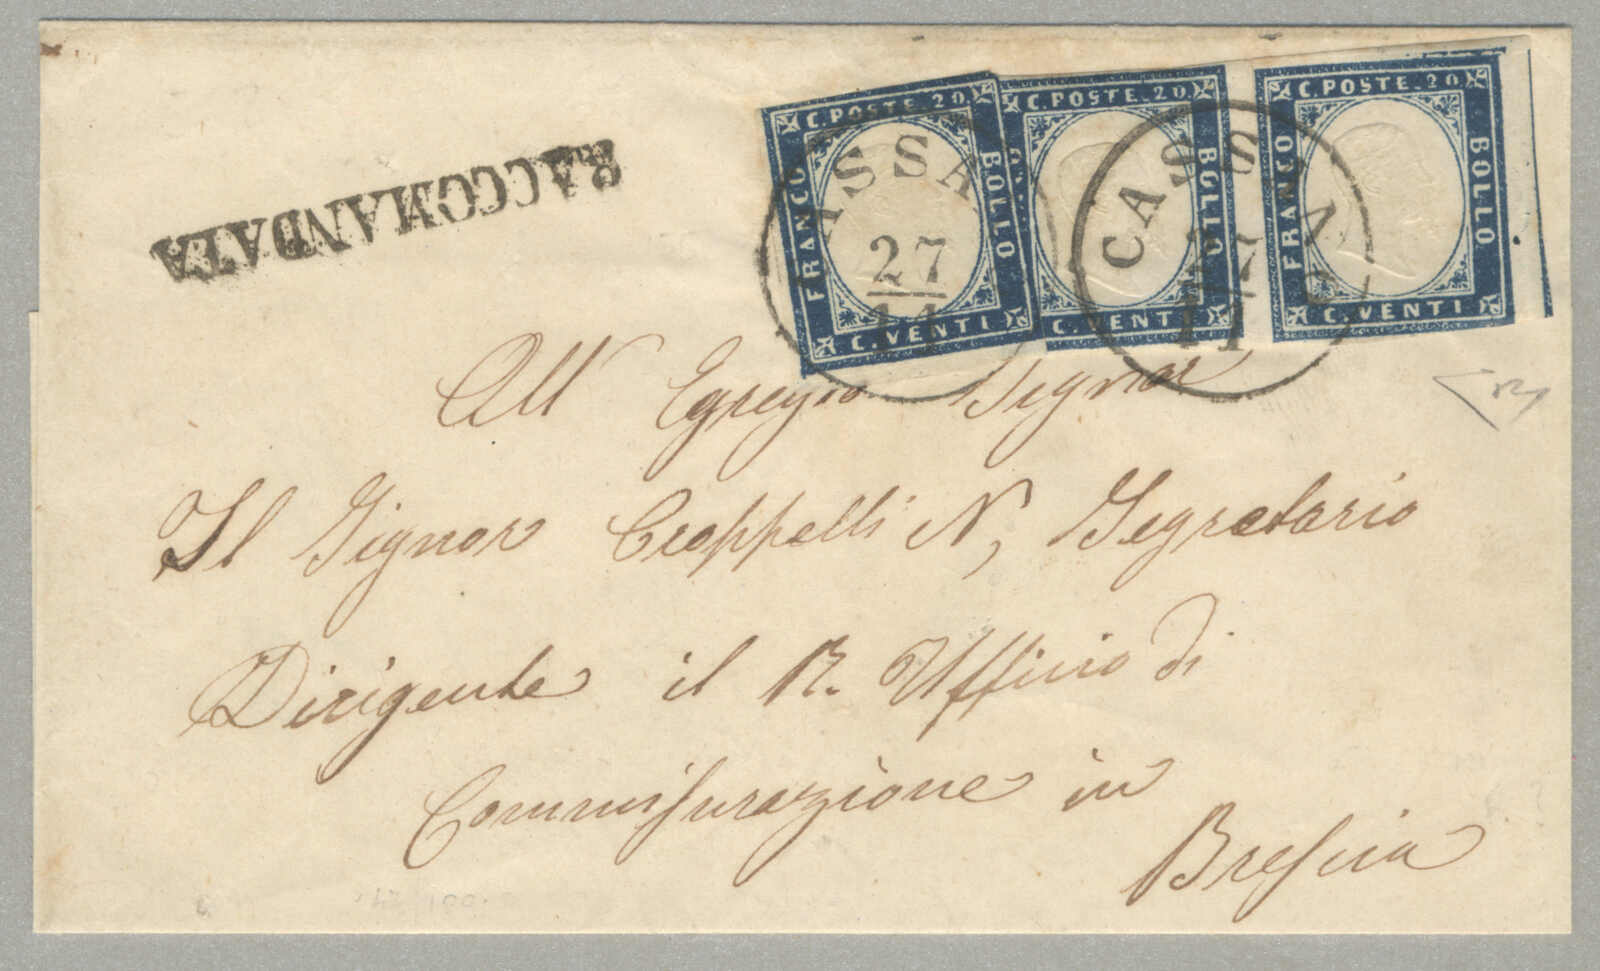 RACCOMANDATA
C. POSTE. 20 FRANCO BOLLO C. VENTI
C. POSTE. 20 BOLLO C. VENTI
C. POSTE. 20 FRANCO BOLLO C. VENTI
ASSA 27 11
CASSANO 27 11
All' Egregio Signor
Il Signor N, Segretario
Dirigente il R. Ufficio di
Commisurazione in
Brescia